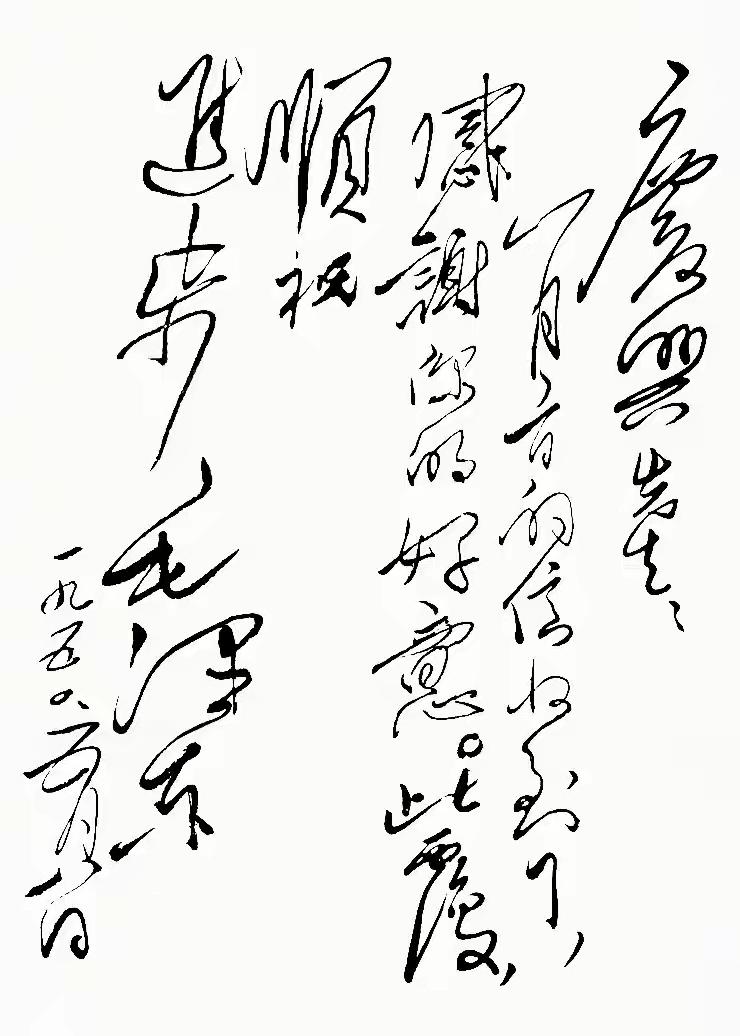 慶興先生：
月日的信收到了，
感謝你的好意。此覆，
順祝
進步
毛澤東
一九五〇、月日